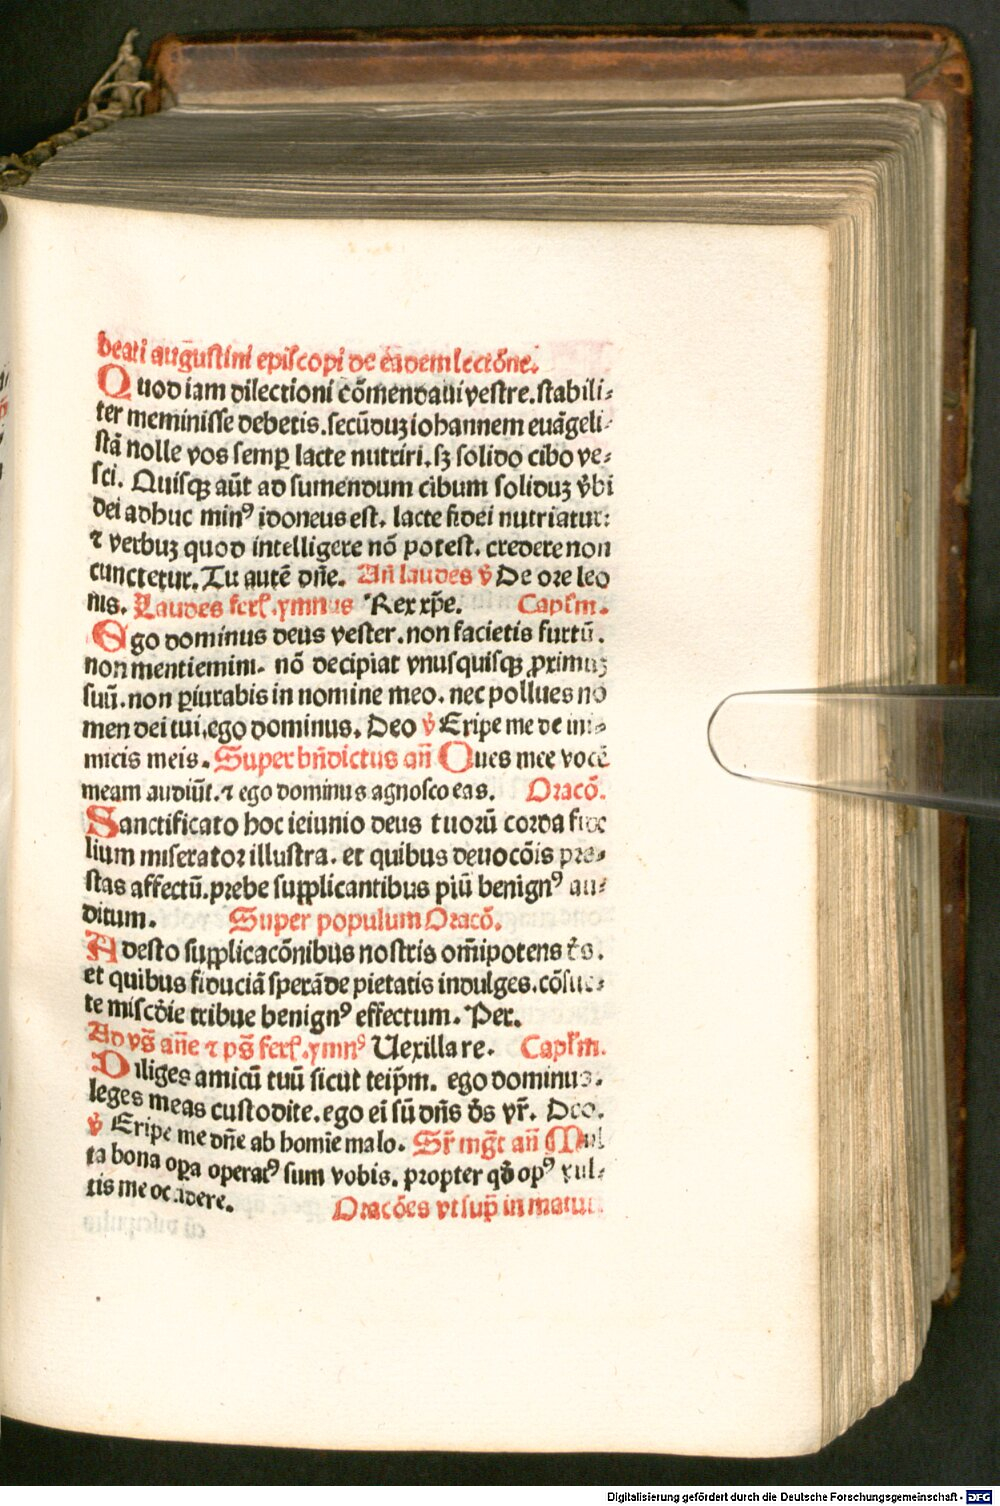 beati augustini episcopi de eadem lectōne.
Quod iam dilectioni cōmendaui vestre. stabili⸗
ter meminisse debetis. secūduꝫ iohannem euāgeli⸗
stā nolle vos semꝑ lacte nutriri. sꝫ solido cibo ve⸗
sci. Quisqꝫ aūt ad sumendum cibum soliduꝫ v̄bi
dei adhuc minꝰ idoneus est. lacte fidei nutriatur:
⁊ verbuꝫ quod intelligere nō potest. credere non
cunctetur. Tu autē dn̄e. An̄ laudes ℣ De ore leo
nis. Laudes ferł. ymnus Rex xp̄e. Capłm.
Ego dominus deus vester. non facietis furtū.
non mentiemini. nō decipiat vnusquisqꝫ ꝓximuꝫ
suū. non ꝑiurabis in nomine meo. nec pollues no
men dei tui. ego dominus. Deo ℣ Eripe me de ini⸗
micis meis. Super bn̄dictus an̄ Oues mee vocē
meam audiūt. ⁊ ego dominus agnosco eas. Oracō.
Sanctificato hoc ieiunio deus tuorū corda fide
lium miserator illustra. et quibus deuocōis pre⸗
stas affectū. prebe supplicantibus piū benignꝰ au⸗
ditum. Super populum Oracō.
Adesto supplicacōnibus nostris om̄ipotens d̄s.
et quibus fiduciā sperāde pietatis indulges. cōsue⸗
te miscd̄ie tribue benignꝰ effectum. Per.
Ad vs̄ an̄e ⁊ ps̄ ferł. ymnꝰ Uexilla re. Capłm.
Diliges amicū tuū sicut teip̄m. ego dominus.
leges meas custodite. ego ei sū dn̄s d̄s vr̄. Deo.
℣ Eripe me dn̄e ab homīe malo. Sr̄ mḡt an̄ Mul
ta bona oꝑa operatꝰ sum vobis. propter qd̄ opꝰ vul⸗
tis me occidere. Oracōes vt supꝑ in matut.
Digitalisierung gefördert durch die Deutsche Forschungsgemeinschaft - DFG